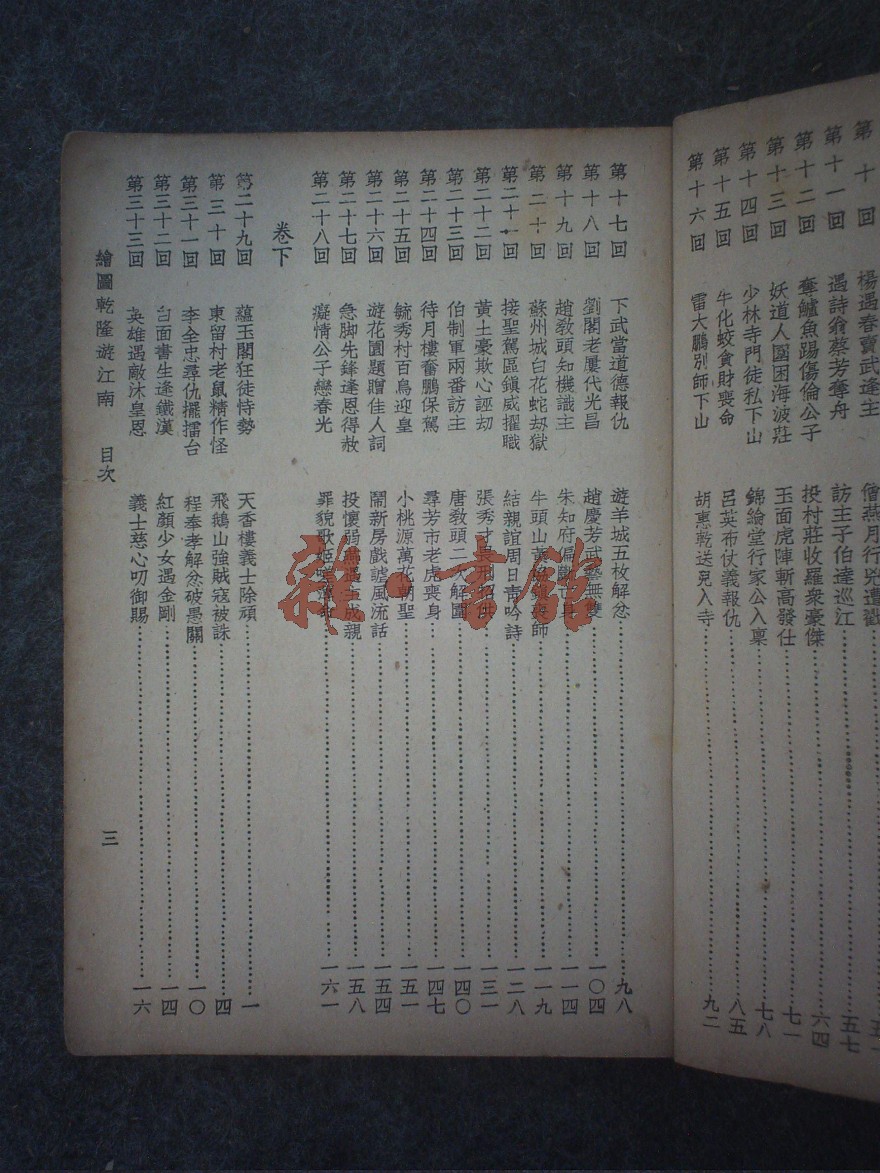 第十回 楊遇春賣武逢主 僧燕月行兇遭戳
第十一回 遇詩翁蔡芳奪舟 訪主子伯達巡江 五七
第十二回 奪鱸魚踢傷倫公子 投村莊收羅衆豪傑 六四
第十三回 妖道人圍困海波莊 玉面虎陣斬高發仕 七一
第十四回 少林寺門徒私下山 錦綸堂行家公入稟 七八
第十五回 牛化蛟貪財喪命 呂英布仗義報仇 八五
第十六回 雷大鵬別師下山 胡惠乾送兒入寺 九二
第十七回 下武當道德報仇 遊羊城五枚解忿 九八
第十八回 劉閣老屢代光昌 趙慶芳武藝無雙 一〇四
第十九回 趙教頭知機識主 朱知府偏斷亡身 一一四
第二十回 蘇州城白花蛇劫獄 牛頭山黃協鎮喪師 一一九
第二十一回 接聖駕區鎮威擢職 結親誼周日青吟詩 一二八
第二十二回 黃土豪欺心誣劫 張秀才 一三一
第二十三回 伯制軍兩番訪主 唐教頭二次解圍 一四〇
第二十四回 待月樓奮鵬保駕 尋芳市老虎喪身 一四七
第二十五回 毓秀村百鳥迎皇 小桃源萬花朝聖 一五一
第二十六回 遊花園題贈佳人詞 鬧新房戲謔風流話 一五四
第二十七回 急脚先鋒逢恩得赦 投懷弱 遇主成親 一五八
第二十八回 癡情公子戀春光 罪貌歌姬 一六一
卷下
第二十九回 蘊玉閣狂徒恃勢 天香樓義士除頑 一
第三十回 東留村老鼠精作怪 飛鵝山強賊寇被誅 四
第三十一回 李全忠尋仇擺擂台 程奉孝解忿破愚關 一〇
第三十二回 白面書生逢鐵漢 紅顏少女遇金剛 一四
第三十三回 英雄遇敵沐皇恩 義士慈心叨御賜 一六
繪圖乾隆遊江南 目次 三
雜書館